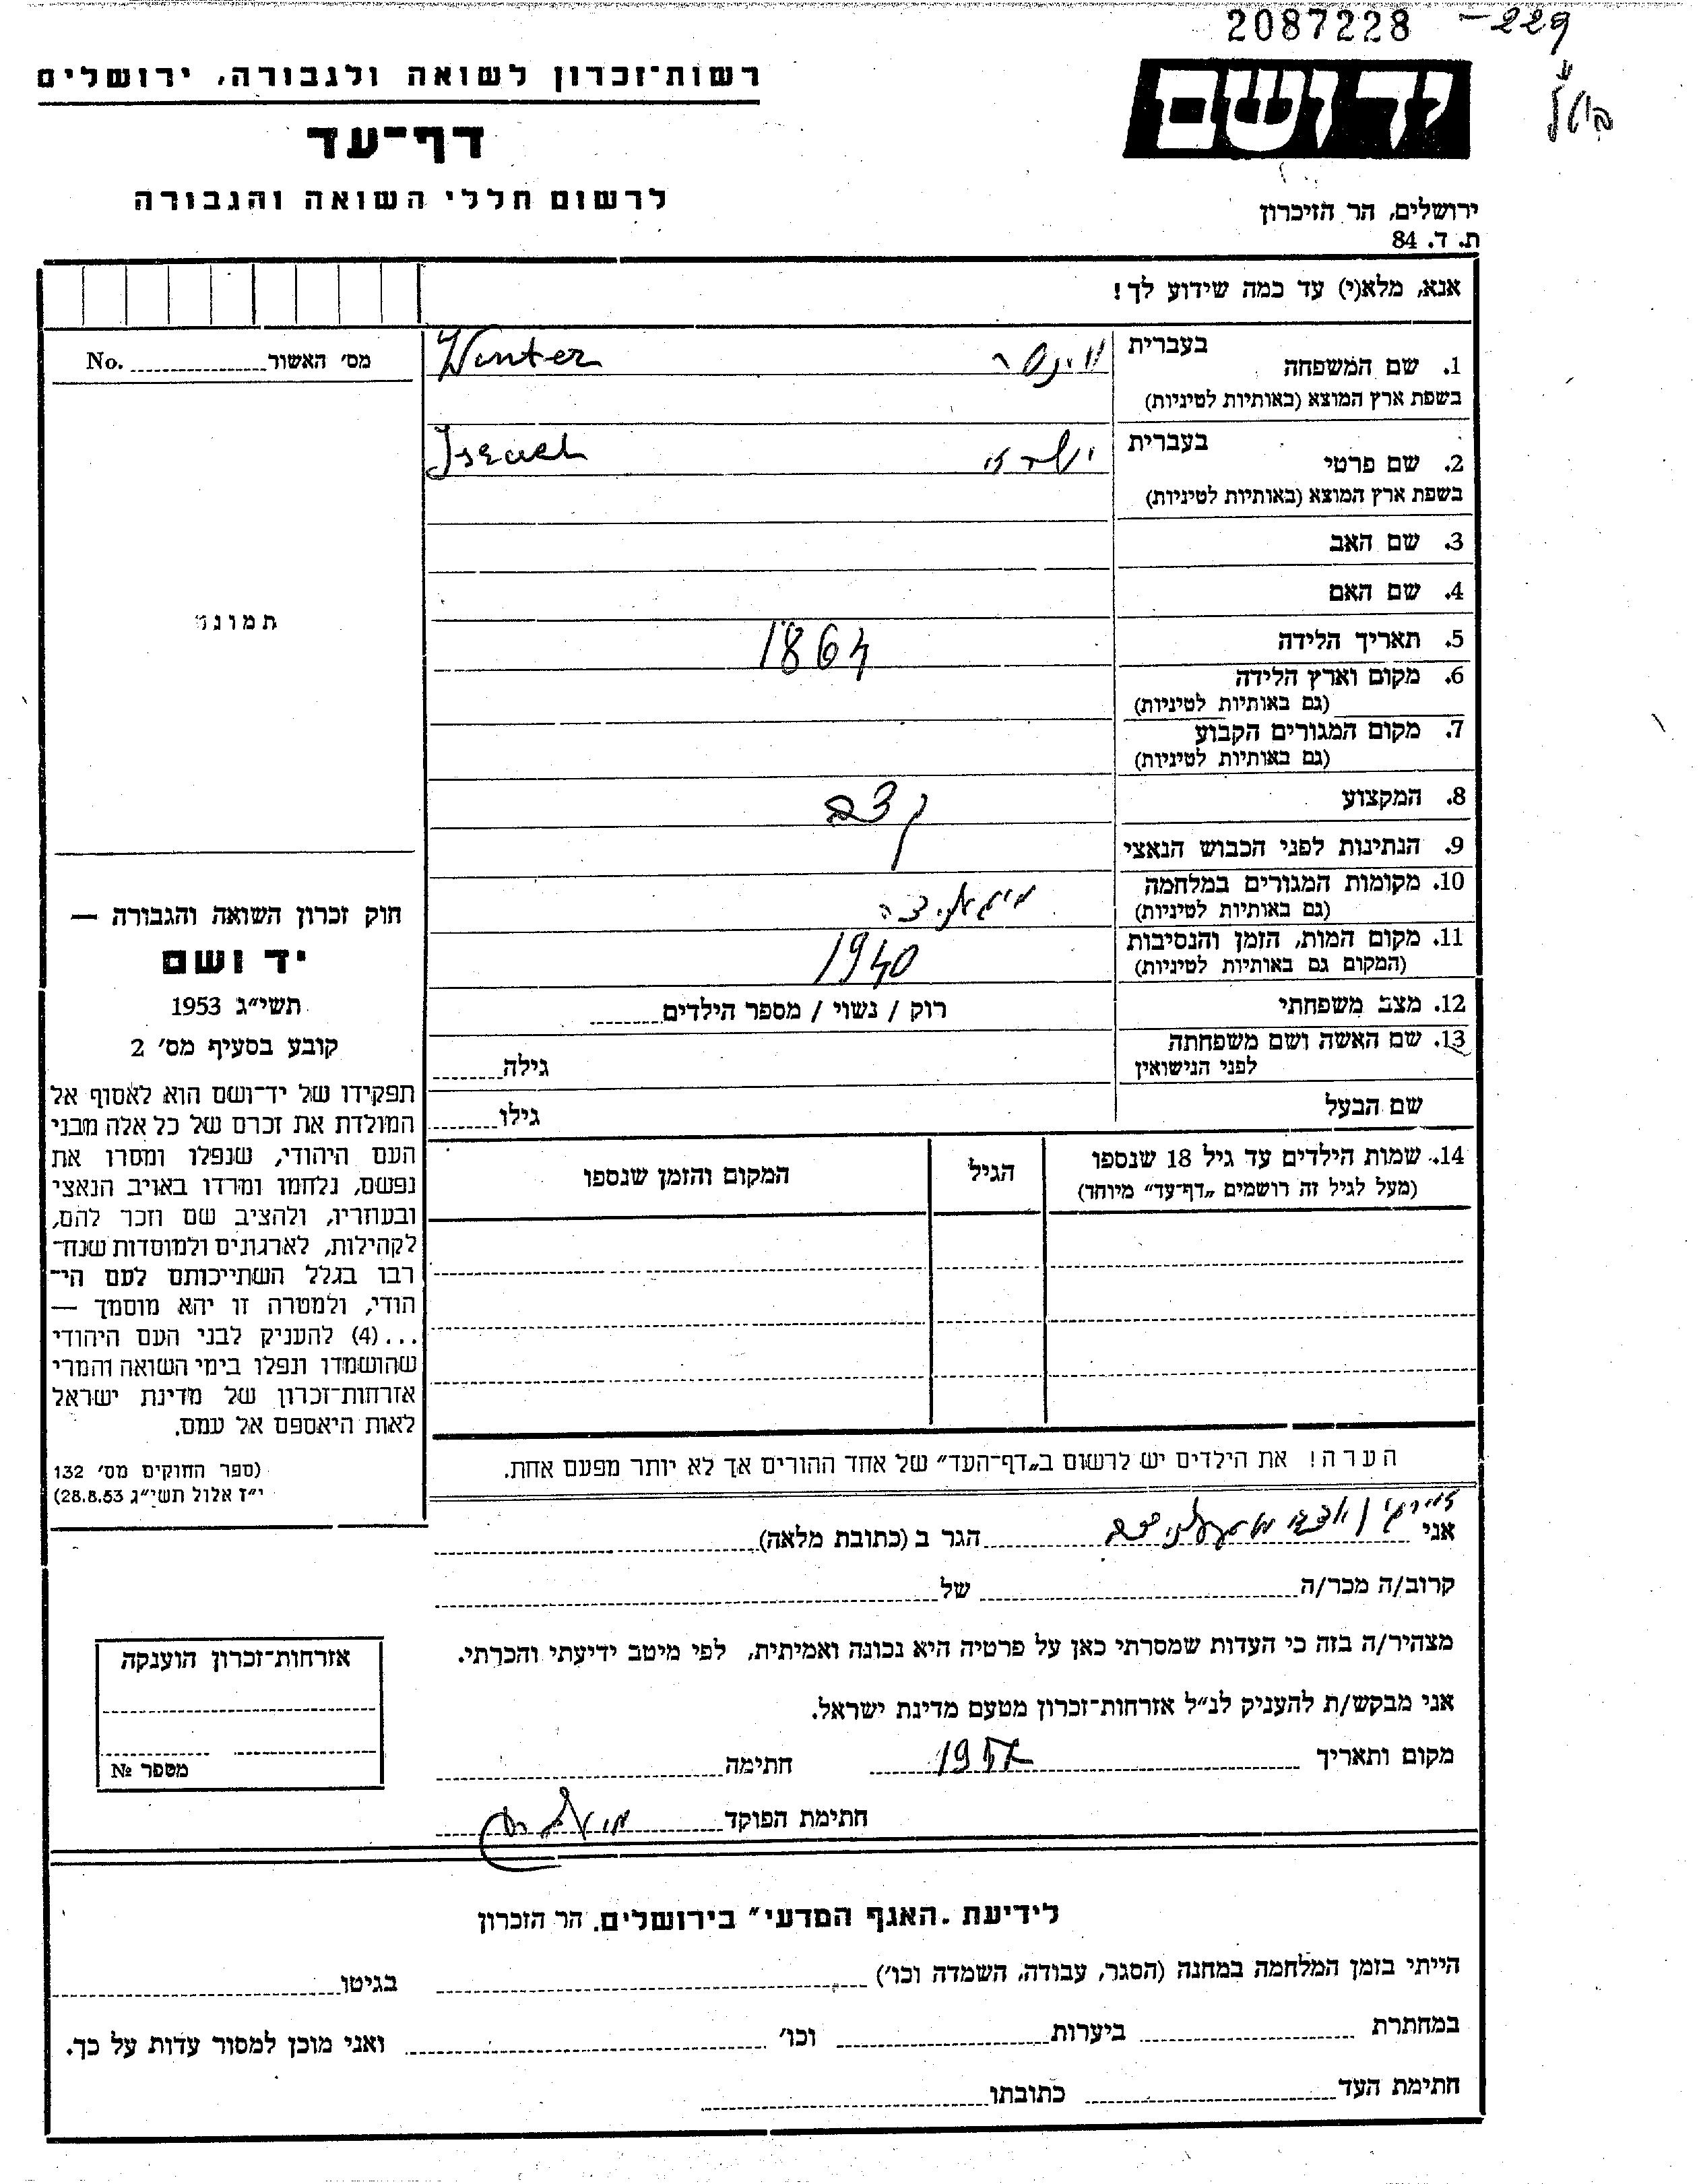 2087228 -229
יד ושם
רשות־זכרון לשואה ולגבורה, ירושלים
דף־עד
לרשום חללי השואה והגבורה
ירושלים, הר הזיכרון
ת. ד. 84
אנא, מלא(י) עד כמה שידוע לך!
1. שם המשפחה בעברית ווינטר Winter
בשפת ארץ המוצא (באותיות לטיניות)
2. שם פרטי בעברית ישראל Israel
בשפת ארץ המוצא (באותיות לטיניות)
3. שם האב
4. שם האם
5. תאריך הלידה 1864
6. מקום וארץ הלידה
(גם באותיות לטיניות)
7. מקום המגורים הקבוע
(גם באותיות לטיניות)
8. המקצוע קצב
9. הנתינות לפני הכבוש הנאצי
10. מקומות המגורים במלחמה
(גם באותיות לטיניות)
11. מקום המות, הזמן והנסיבות 1940
(המקום גם באותיות לטיניות)
12. מצב משפחתי רוק / נשוי / מספר הילדים
13. שם האשה ושם משפחתה
לפני הנישואין גילה
שם הבעל גילו
14. שמות הילדים עד גיל 18 שנספו הגיל המקום והזמן שנספו
(מעל לגיל זה רושמים „דף־עד” מיוחד)
הערה! את הילדים יש לרשום ב„דף־העד” של אחד ההורים אך לא יותר מפעם אחת.
מס׳ האשור No.
תמונה
חוק זכרון השואה והגבורה —
יד ושם
תשי״ג 1953
קובע בסעיף מס׳ 2
תפקידו של יד־ושם הוא לאסוף אל
המולדת את זכרם של כל אלה מבני
העם היהודי, שנפלו ומסרו את
נפשם, נלחמו ומרדו באויב הנאצי
ובעוזריו, ולהציב שם וזכר להם,
לקהילות, לארגונים ולמוסדות שנח־
רבו בגלל השתייכותם לעם הי־
הודי, ולמטרה זו יהא מוסמך —
...(4) להעניק לבני העם היהודי
שהושמדו ונפלו בימי השואה והמרי
אזרחות־זכרון של מדינת ישראל
לאות היאספם אל עמם.
(ספר החוקים מס׳ 132
י״ז אלול תשי״ג 28.8.53)
אני הגר ב (כתובת מלאה)
קרוב/ה מכר/ה של
מצהיר/ה בזה כי העדות שמסרתי כאן על פרטיה היא נכונה ואמיתית, לפי מיטב ידיעתי והכרתי.
אני מבקש/ת להעניק לנ״ל אזרחות־זכרון מטעם מדינת ישראל.
מקום ותאריך חתימה
חתימת הפוקד
אזרחות־זכרון הוענקה
מספר №
לידיעת „האגף המדעי” בירושלים. הר הזכרון
הייתי בזמן המלחמה במחנה (הסגר, עבודה, השמדה וכו׳) בגיטו
במחתרת ביערות וכו׳ ואני מוכן למסור עדות על כך.
חתימת העד כתובתו